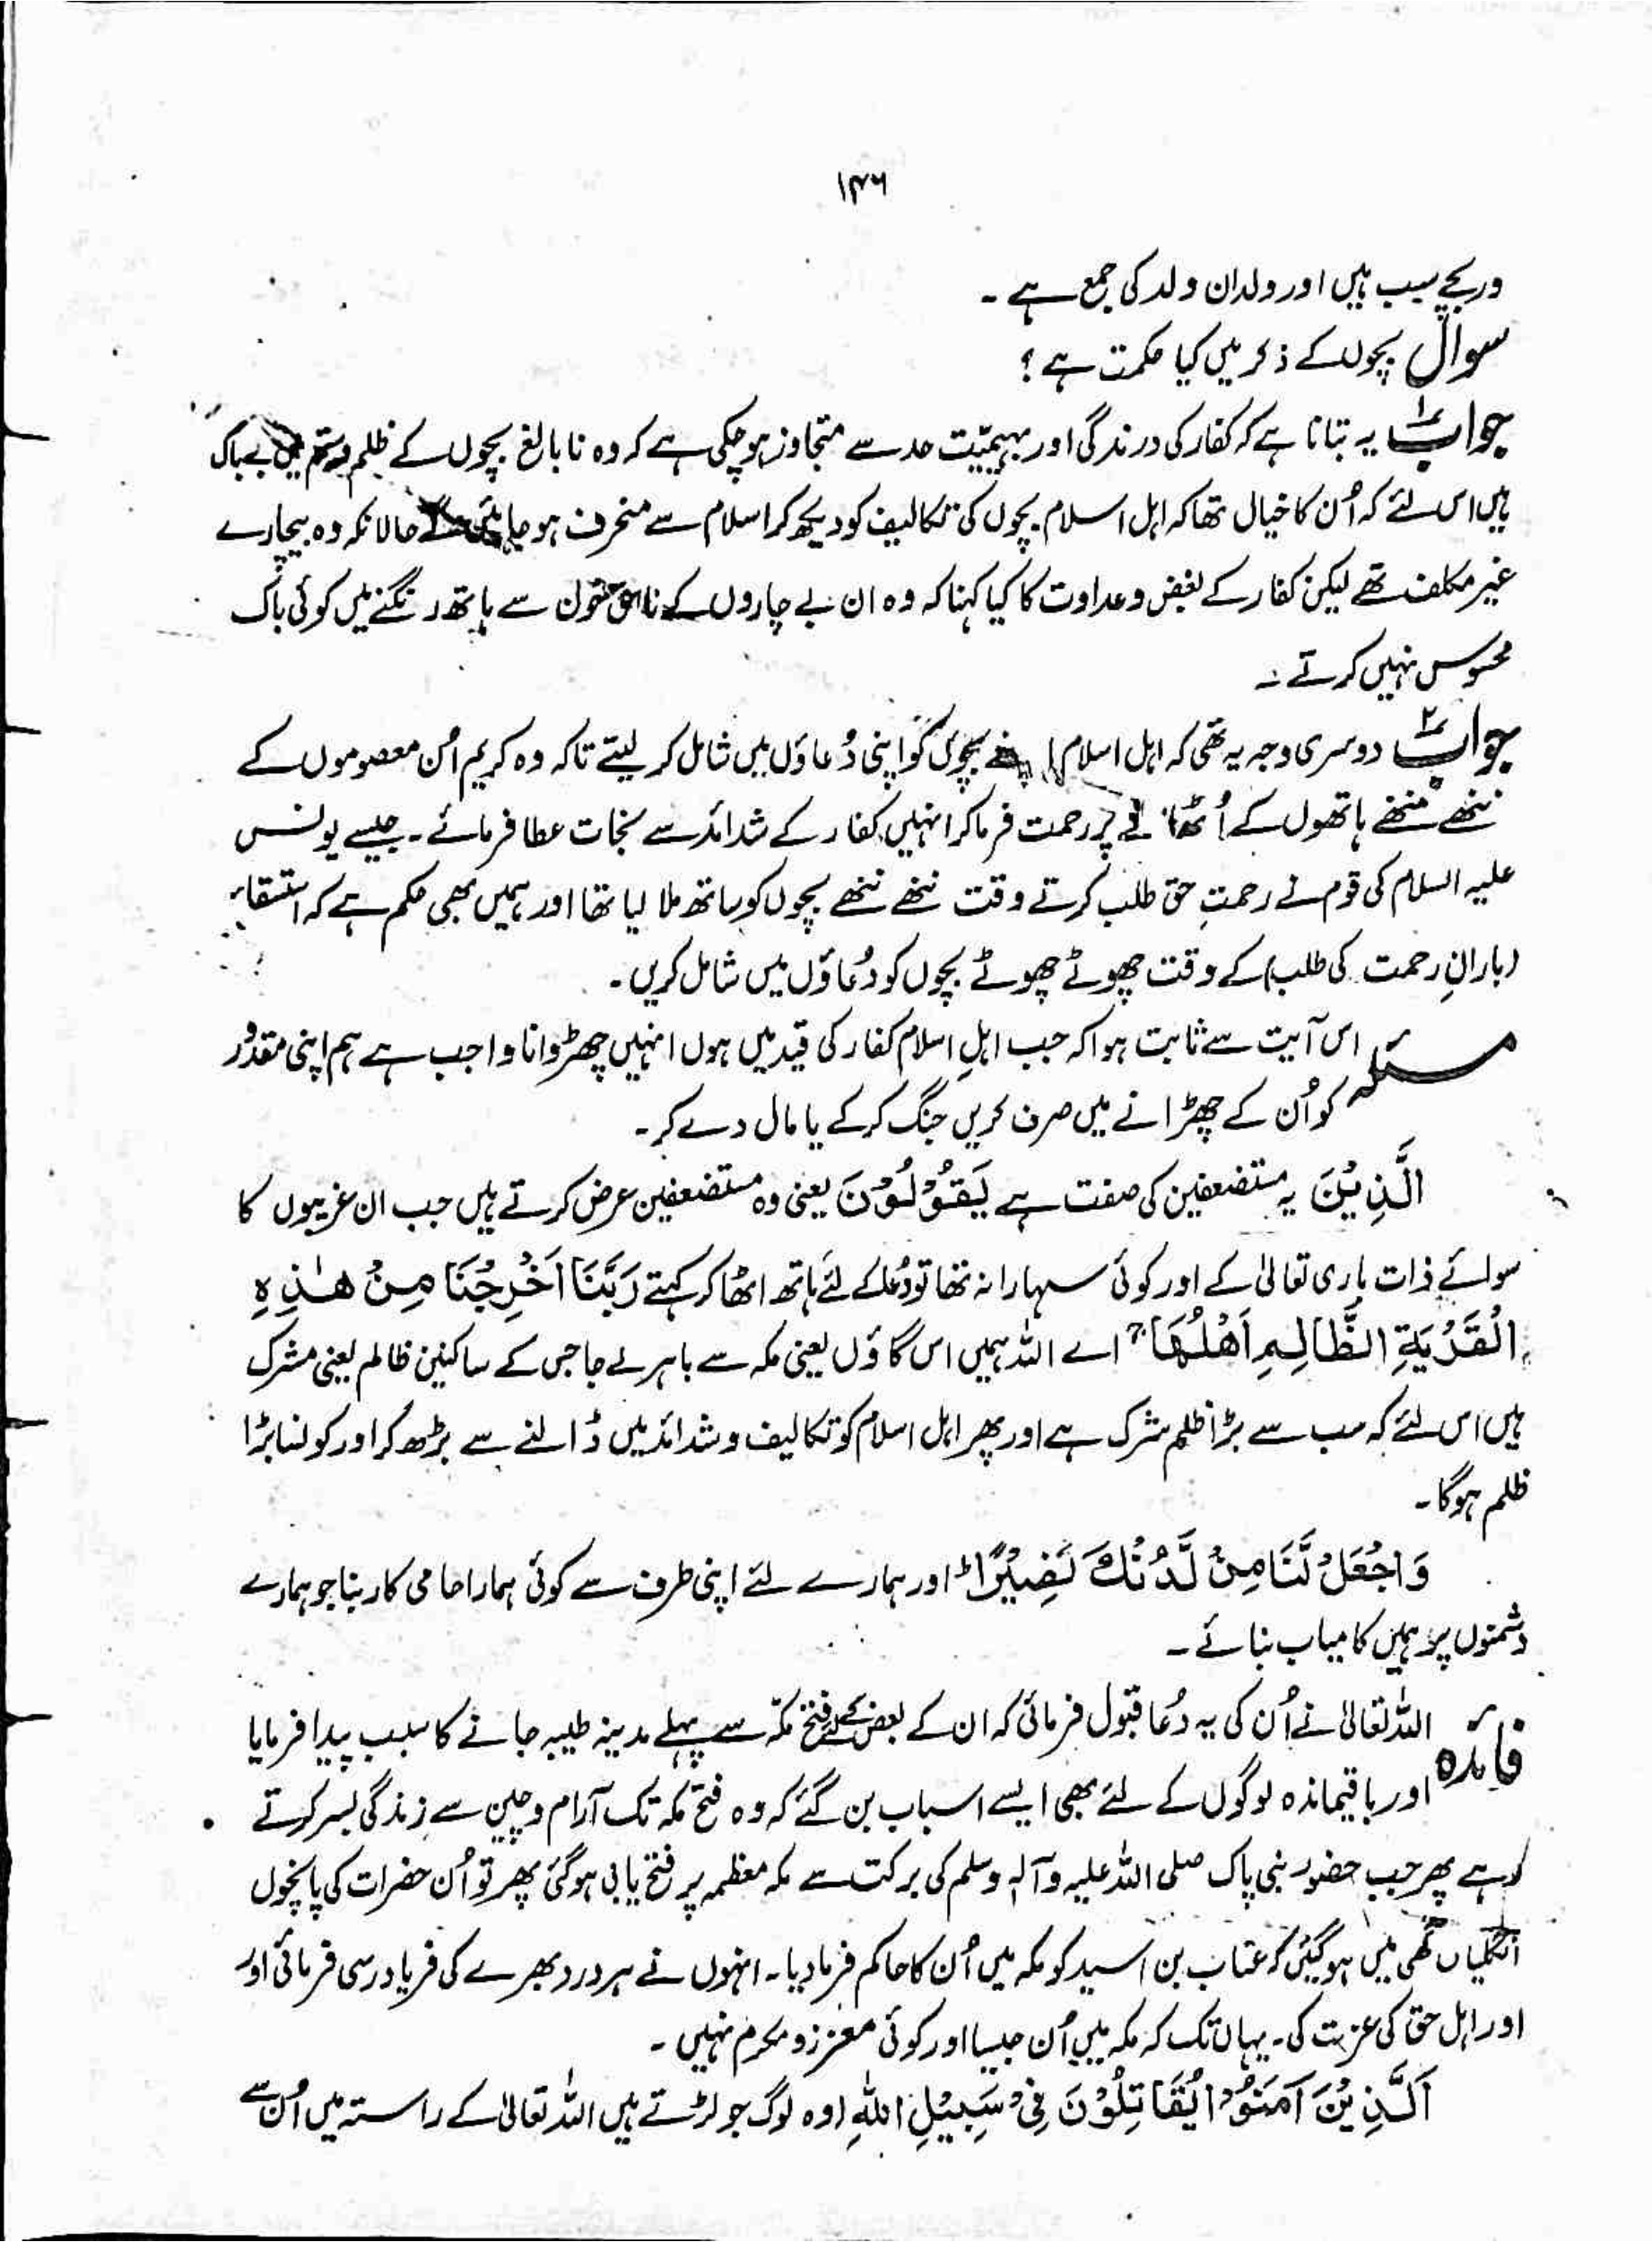 ۱۴۶
وربچے سبب ہیں اور ولدان ولد کی جمع ہے ۔
سوال بچوں کے ذکر میں کیا حکمت ہے ؟
جواب ۱ یہ بتانا ہے کہ کفار کی درندگی اور بہیمیّت حد سے متجاوز ہو چکی ہے کہ وہ نابالغ بچوں کے ظلم وستم میں بے باک
ہیں اس لئے کہ اُن کا خیال تھا کہ اہل اسلام بچوں کی تکالیف کو دیکھ کر اسلام سے منحرف ہو جائیں گے حالانکہ وہ بیچارے
غیر مکلف تھے لیکن کفار کے بغض و عداوت کا کیا کہنا کہ وہ ان بے چاروں کے ناحق خون سے ہاتھ رنگنے میں کوئی باک
محسوس نہیں کرتے ۔
جواب ۲ دوسری وجہ یہ تھی کہ اہل اسلام اپنے بچوں کو اپنی دُعاؤں میں شامل کر لیتے تاکہ وہ کریم اُن معصوموں کے
ننھے منھے ہاتھوں کے اُٹھانے پر رحمت فرما کر انہیں کفار کے شدائد سے نجات عطا فرمائے ۔ جیسے یونس
علیہ السلام کی قوم نے رحمتِ حق طلب کرتے وقت ننھے ننھے بچوں کو ساتھ ملا لیا تھا اور ہمیں بھی حکم ہے کہ استسقاء
(بارانِ رحمت کی طلب) کے وقت چھوٹے چھوٹے بچوں کو دُعاؤں میں شامل کریں ۔
مسئلہ اس آیت سے ثابت ہوا کہ جب اہلِ اسلام کفار کی قید میں ہوں انہیں چھڑوانا واجب ہے ہم اپنی مقدُور
کو اُن کے چھڑانے میں صرف کریں جنگ کر کے یا مال دے کر ۔
الَّذِیْنَ یہ مستضعفین کی صفت ہے یَقُوْلُوْنَ یعنی وہ مستضعفین عرض کرتے ہیں جب ان غریبوں کا
سوائے ذات باری تعالیٰ کے اور کوئی سہارا نہ تھا تو دُعا کے لئے ہاتھ اٹھا کر کہتے رَبَّنَا اَخْرِجْنَا مِنْ ھٰذِہِ
الْقَرْیَۃِ الظَّالِمِ اَھْلُھَا اے اللہ ہمیں اس گاؤں یعنی مکہ سے باہر لے جا جس کے ساکنین ظالم یعنی مشرک
ہیں اس لئے کہ سب سے بڑا ظلم شرک ہے اور پھر اہل اسلام کو تکالیف و شدائد میں ڈالنے سے بڑھ کر اور کونسا بڑا
ظلم ہوگا ۔
وَاجْعَلْ لَّنَا مِنْ لَّدُنْكَ نَصِیْرًا ؕ اور ہمارے لئے اپنی طرف سے کوئی ہمارا حامی کار بنا جو ہمارے
دشمنوں پر ہمیں کامیاب بنائے ۔
فائدہ اللہ تعالیٰ نے اُن کی یہ دُعا قبول فرمائی کہ ان کے بعض کے لئے فتح مکہ سے پہلے مدینہ طیبہ جانے کا سبب پیدا فرمایا
اور باقیماندہ لوگوں کے لئے بھی ایسے اسباب بن گئے کہ وہ فتح مکہ تک آرام و چین سے زندگی بسر کرتے
رہے پھر جب حضور نبی پاک صلی اللہ علیہ وآلہ وسلم کی برکت سے مکہ معظمہ پر فتح یابی ہوگئی پھر تو اُن حضرات کی پانچوں
انگلیاں گھی میں ہوگئیں کہ عتاب بن اسید کو مکہ میں اُن کا حاکم فرما دیا ۔ انہوں نے ہر درد بھرے کی فریاد رسی فرمائی اور
اور اہل حق کی عزت کی ۔ یہاں تک کہ مکہ میں اُن جیسا اور کوئی معزز و مکرم نہیں ۔
اَلَّذِیْنَ آمَنُوْا یُقَاتِلُوْنَ فِیْ سَبِیْلِ اللّٰهِ (وہ لوگ جو لڑتے ہیں اللہ تعالیٰ کے راستہ میں اُن سے